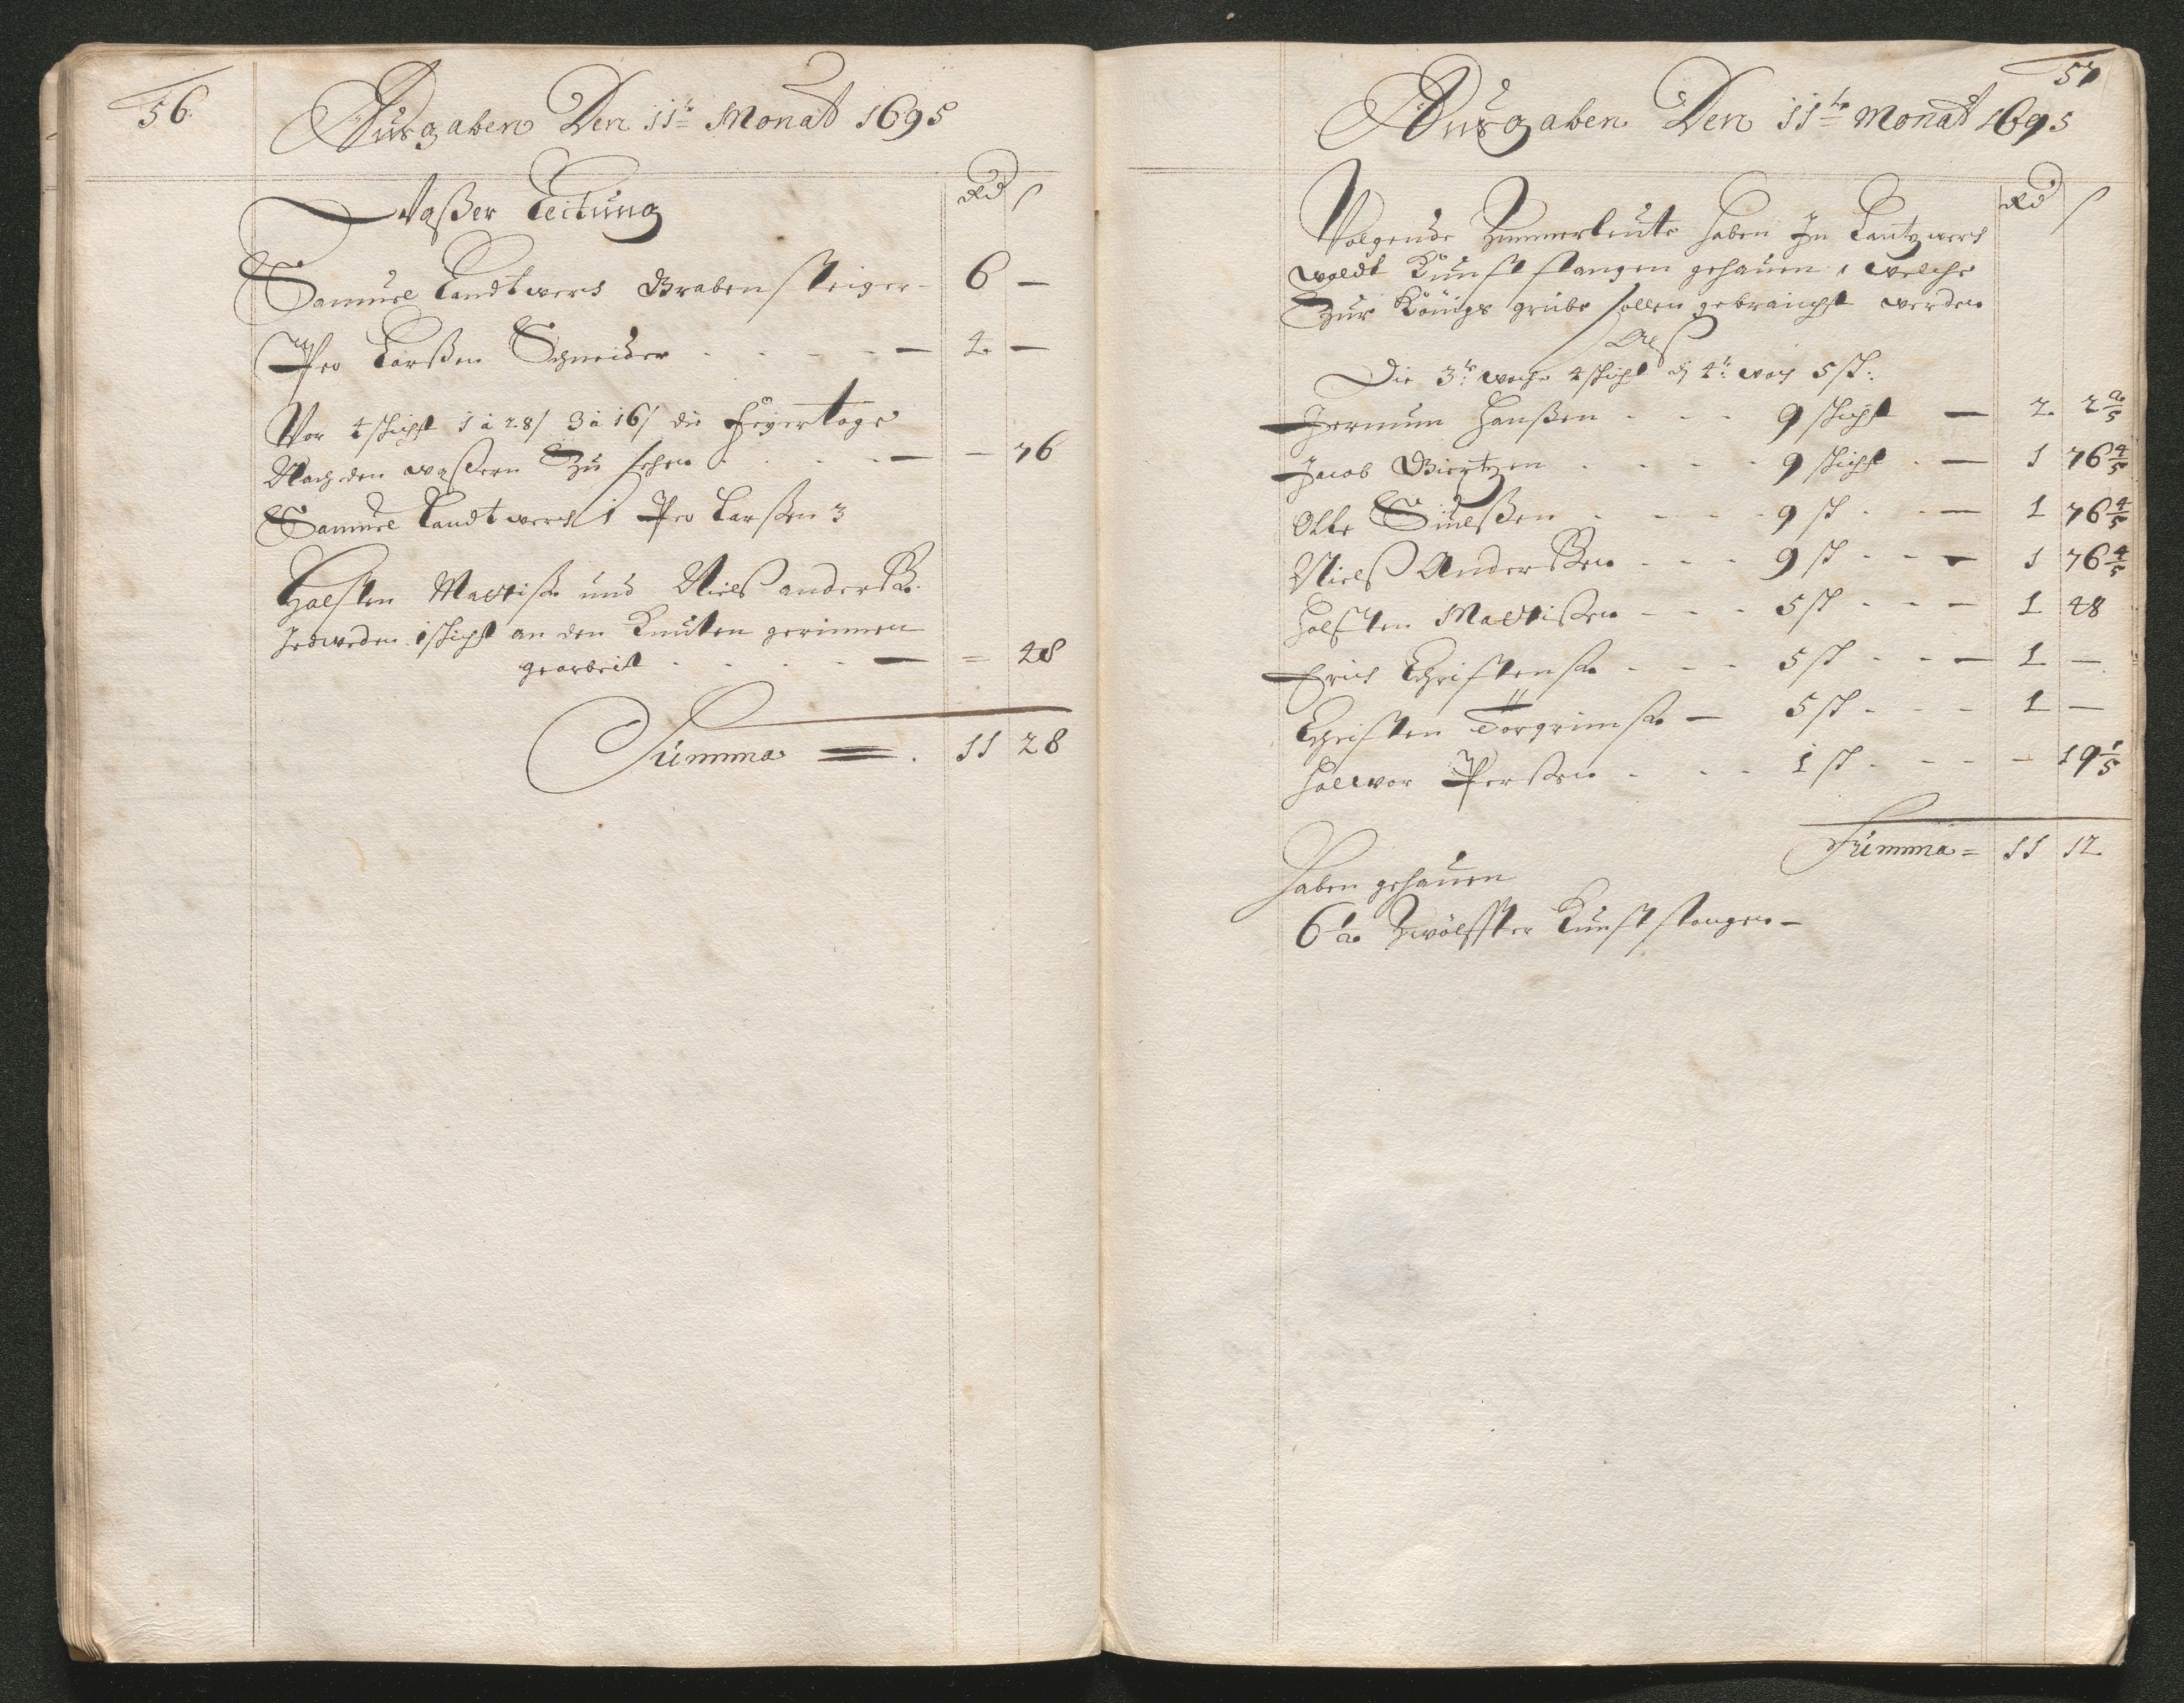 56.
Ausgaben Den 11te Monat 1695
Rd ß
Waßer Leitung
Samuel Landtwerch Grabensteiger - 6 -
Peo Larßen Schneider - - - - 4 -
Vor 4 schicht 1 â 28 ß 3 â 16 ß die Feyertage
Nach den waßern Zu sehen - - - - 76
Samuel Landtwerch 1 Peo Larßen 3
Halsten Mattisß und Nielß anderß.
Jedweden 1 schicht an den Knuten gerinnen
gearbeit - - - - = 48
Summa = 11 28
57
Ausgaben Den 11te Monat 1695
Rd ß
Volgende Zimmerleute haben In Lantzwerch
waldt Kunst stangen gehauen, welche
Zur Königs grube sollen gebraucht werden
Alß
Die 3te woche 4 schicht die 4te woch 5 sch:
Hermum Hanßen - - - 9 schicht - 2 2 2/5
Jacob Giertzen - - - 9 schicht - 1 76 4/5
Olle Siulßen - - - 9 sch - - 1 76 4/5
Nielß Anderßen - - - 9 sch - - 1 76 4/5
Halsten Mattißen - - - 5 sch - - 1 48
Erich Christenß - - - 5 sch - - 1 -
Christen Torgrimß - 5 sch - - 1 -
Hallvor Perßen - - - 1 sch - - - 19 1/5
Summa = 11 12
Haben gehauen
6 1/2 Zwölffter Kunst stangen -